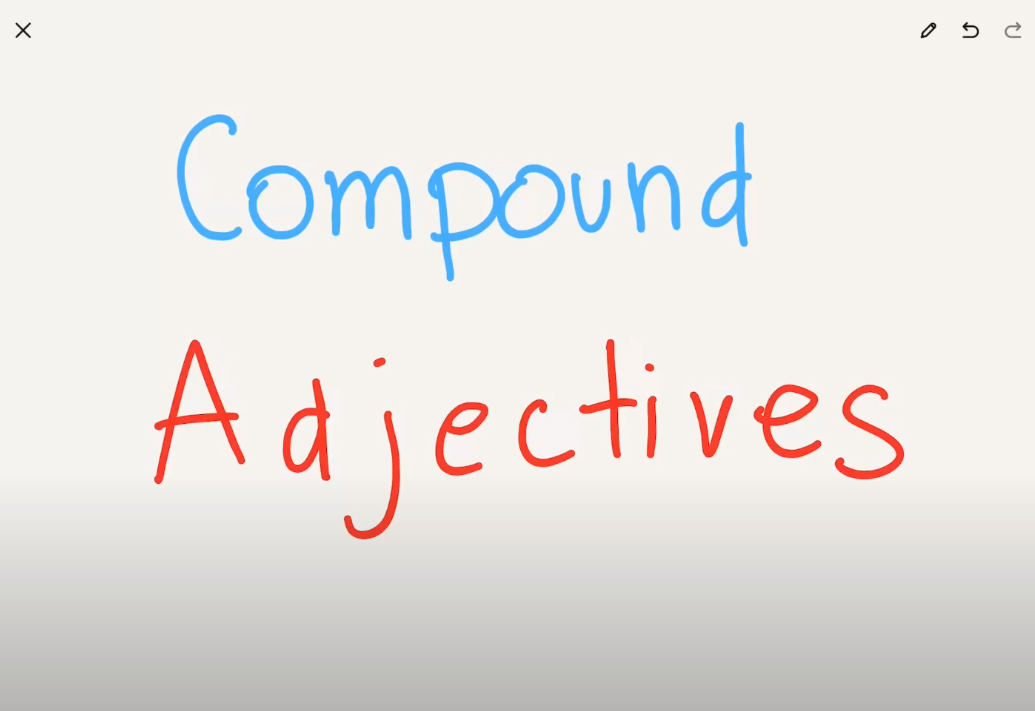 Compound
Adjectives